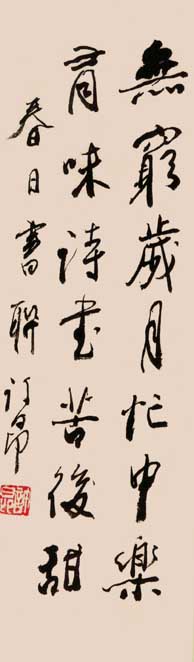 無窮歲月忙中樂
有味詩書苦後甜
春日書聯許昂